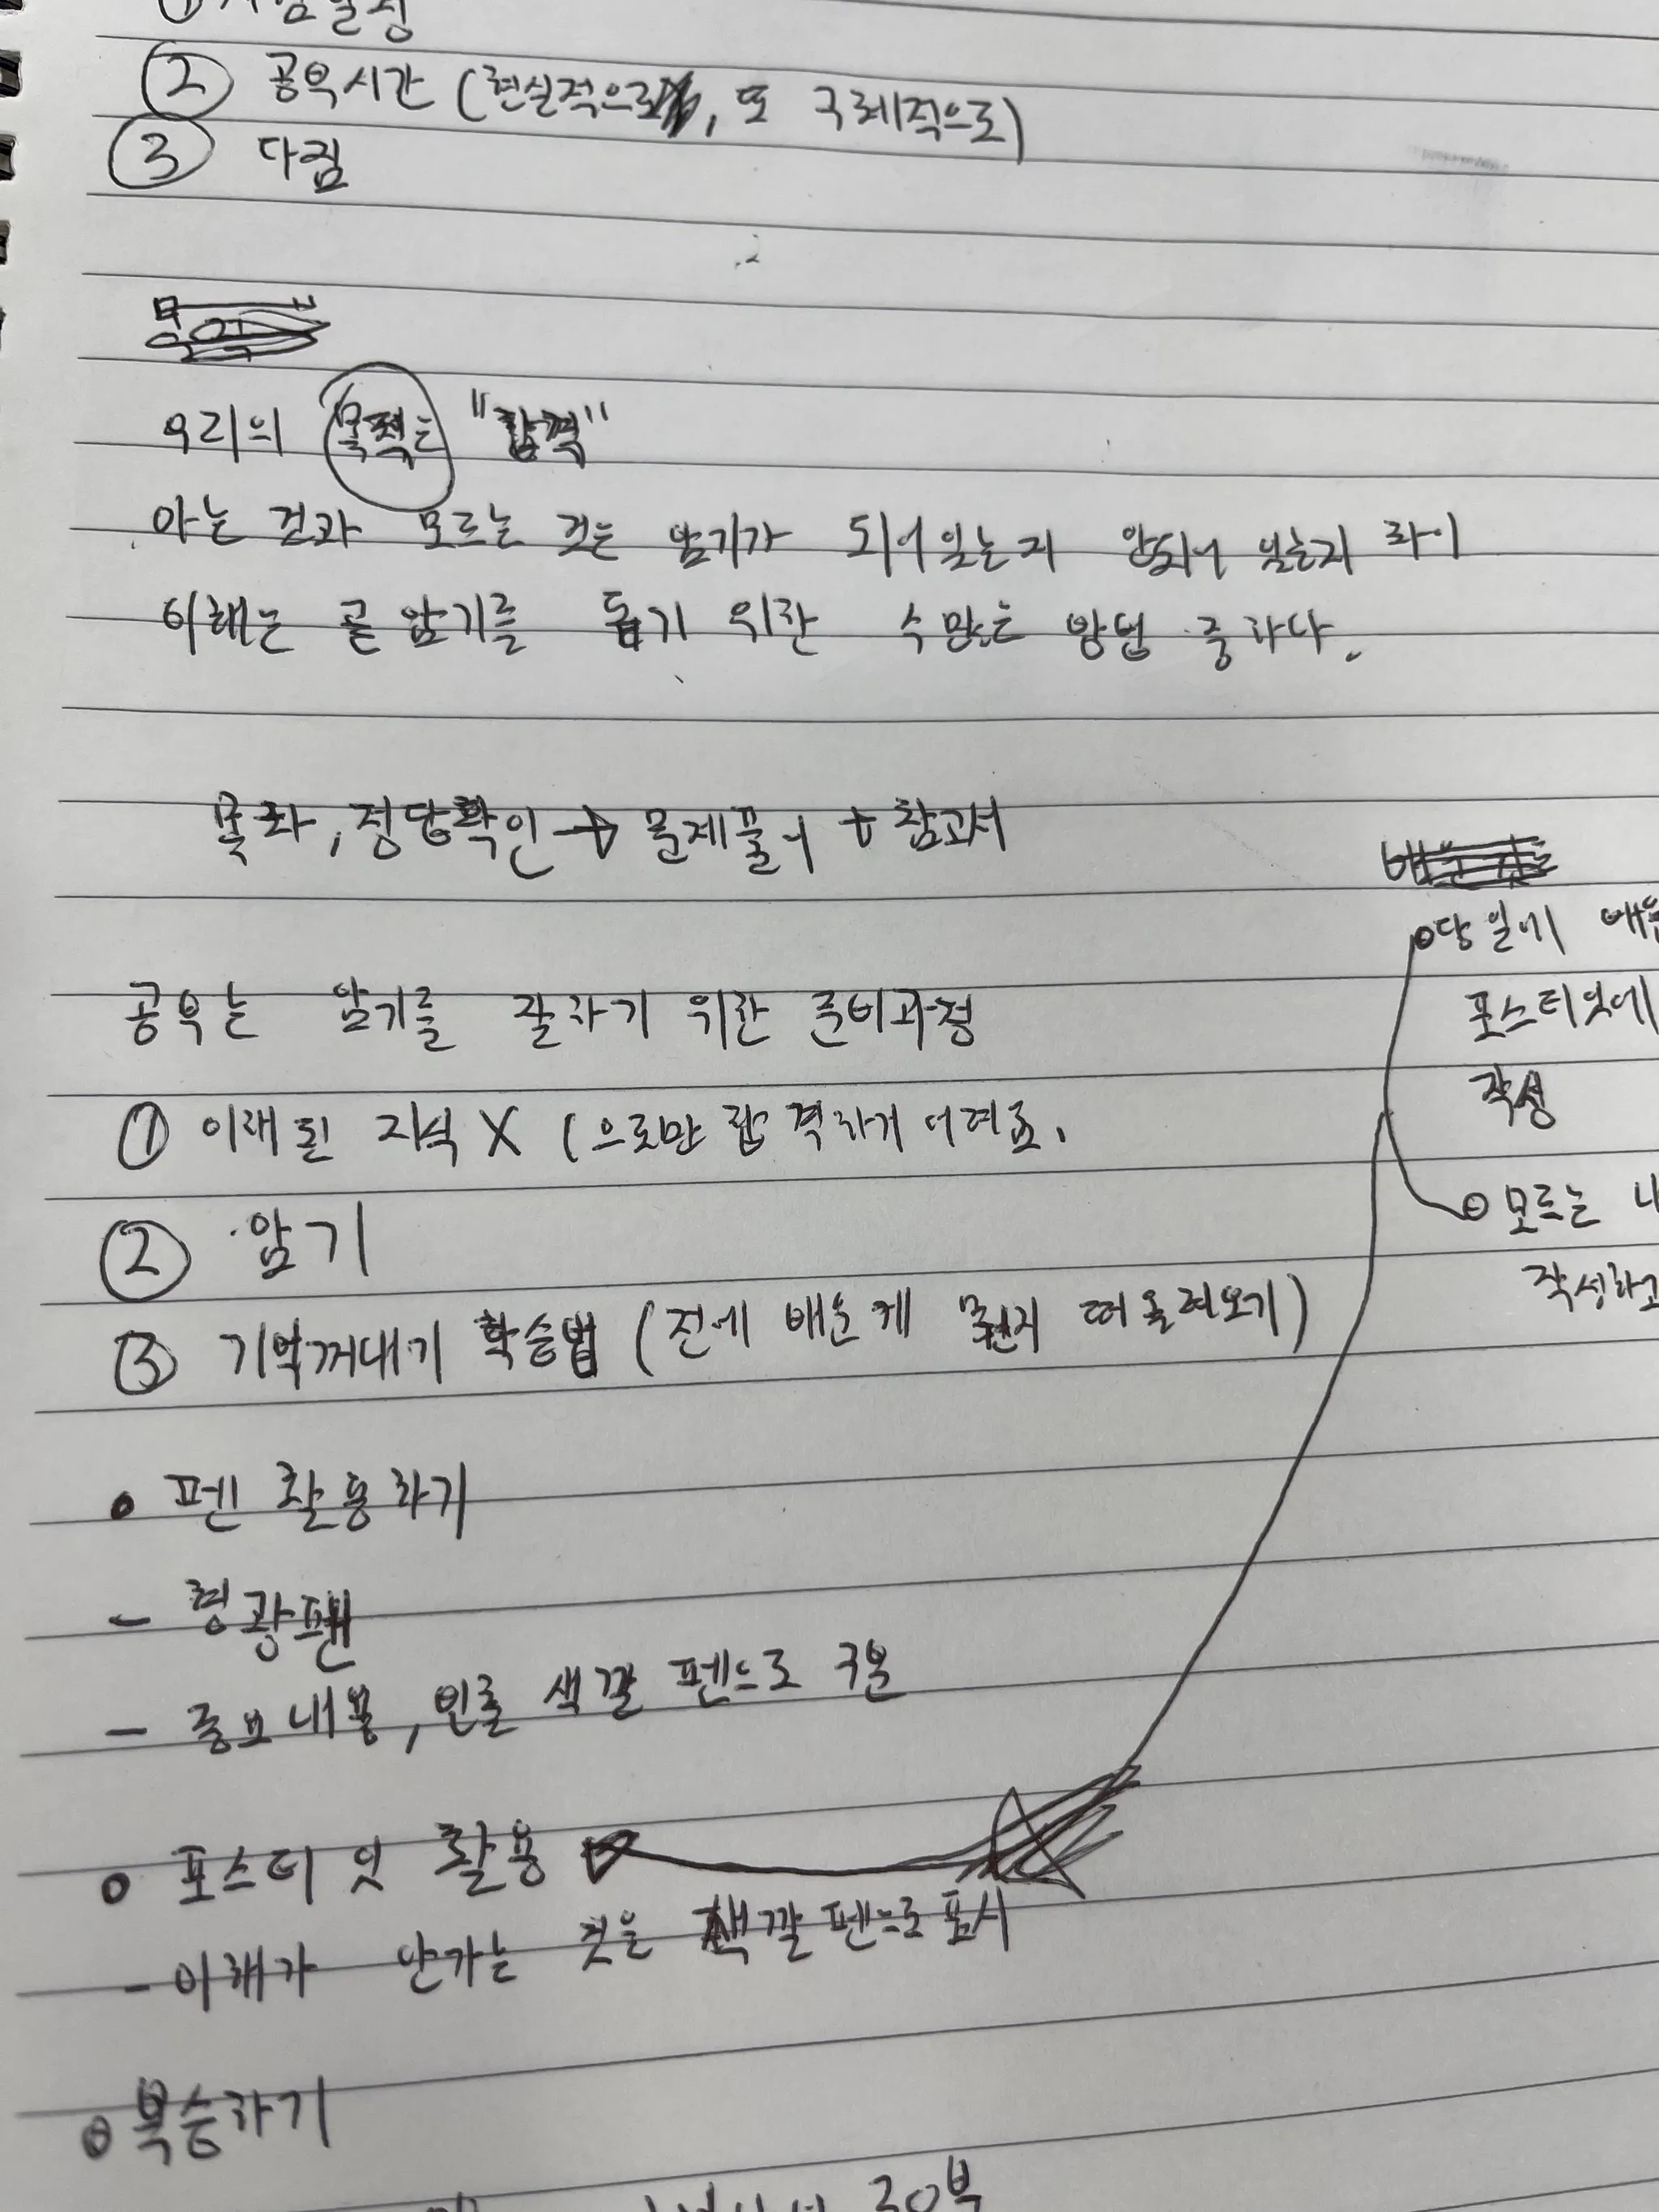 ② 공부시간 (현실적으로, 또 구체적으로)
③ 다짐
우리의 목적은 "합격"
아는 것과 모르는 것은 암기가 되어있는지 안되어 있는지 차이
이해는 곧 암기를 돕기 위한 수많은 방법 중 하나다.
목차, 정답확인 → 문제풀이 + 참고서
공부는 암기를 잘하기 위한 준비과정
① 이해된 지식 X (으로만 합격하기 어려움.
② 암기
③ 기억꺼내기 학습법 (전에 배운게 뭔지 떠올려오기)
• 펜 활용하기
- 형광펜
- 중요내용, 인출 색깔 펜으로 구분
• 포스티잇 활용
- 이해가 안가는 것을 색깔펜으로 표시
• 복습하기
30분
• 당일에
포스티잇에
작성
• 모르는
작성하고